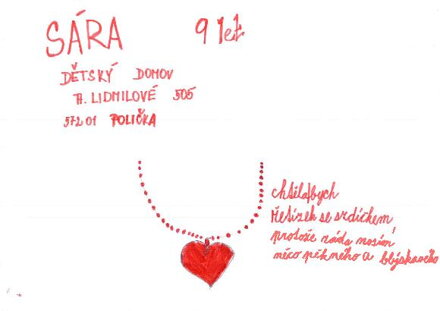 SÁRA 9 let
DĚTSKÝ DOMOV
H. LIDMILOVÉ 505
572 01 POLIČKA
chtěla bych
řetízek se srdíčkem
protože ráda nosím
něco pěkného a blýskavého